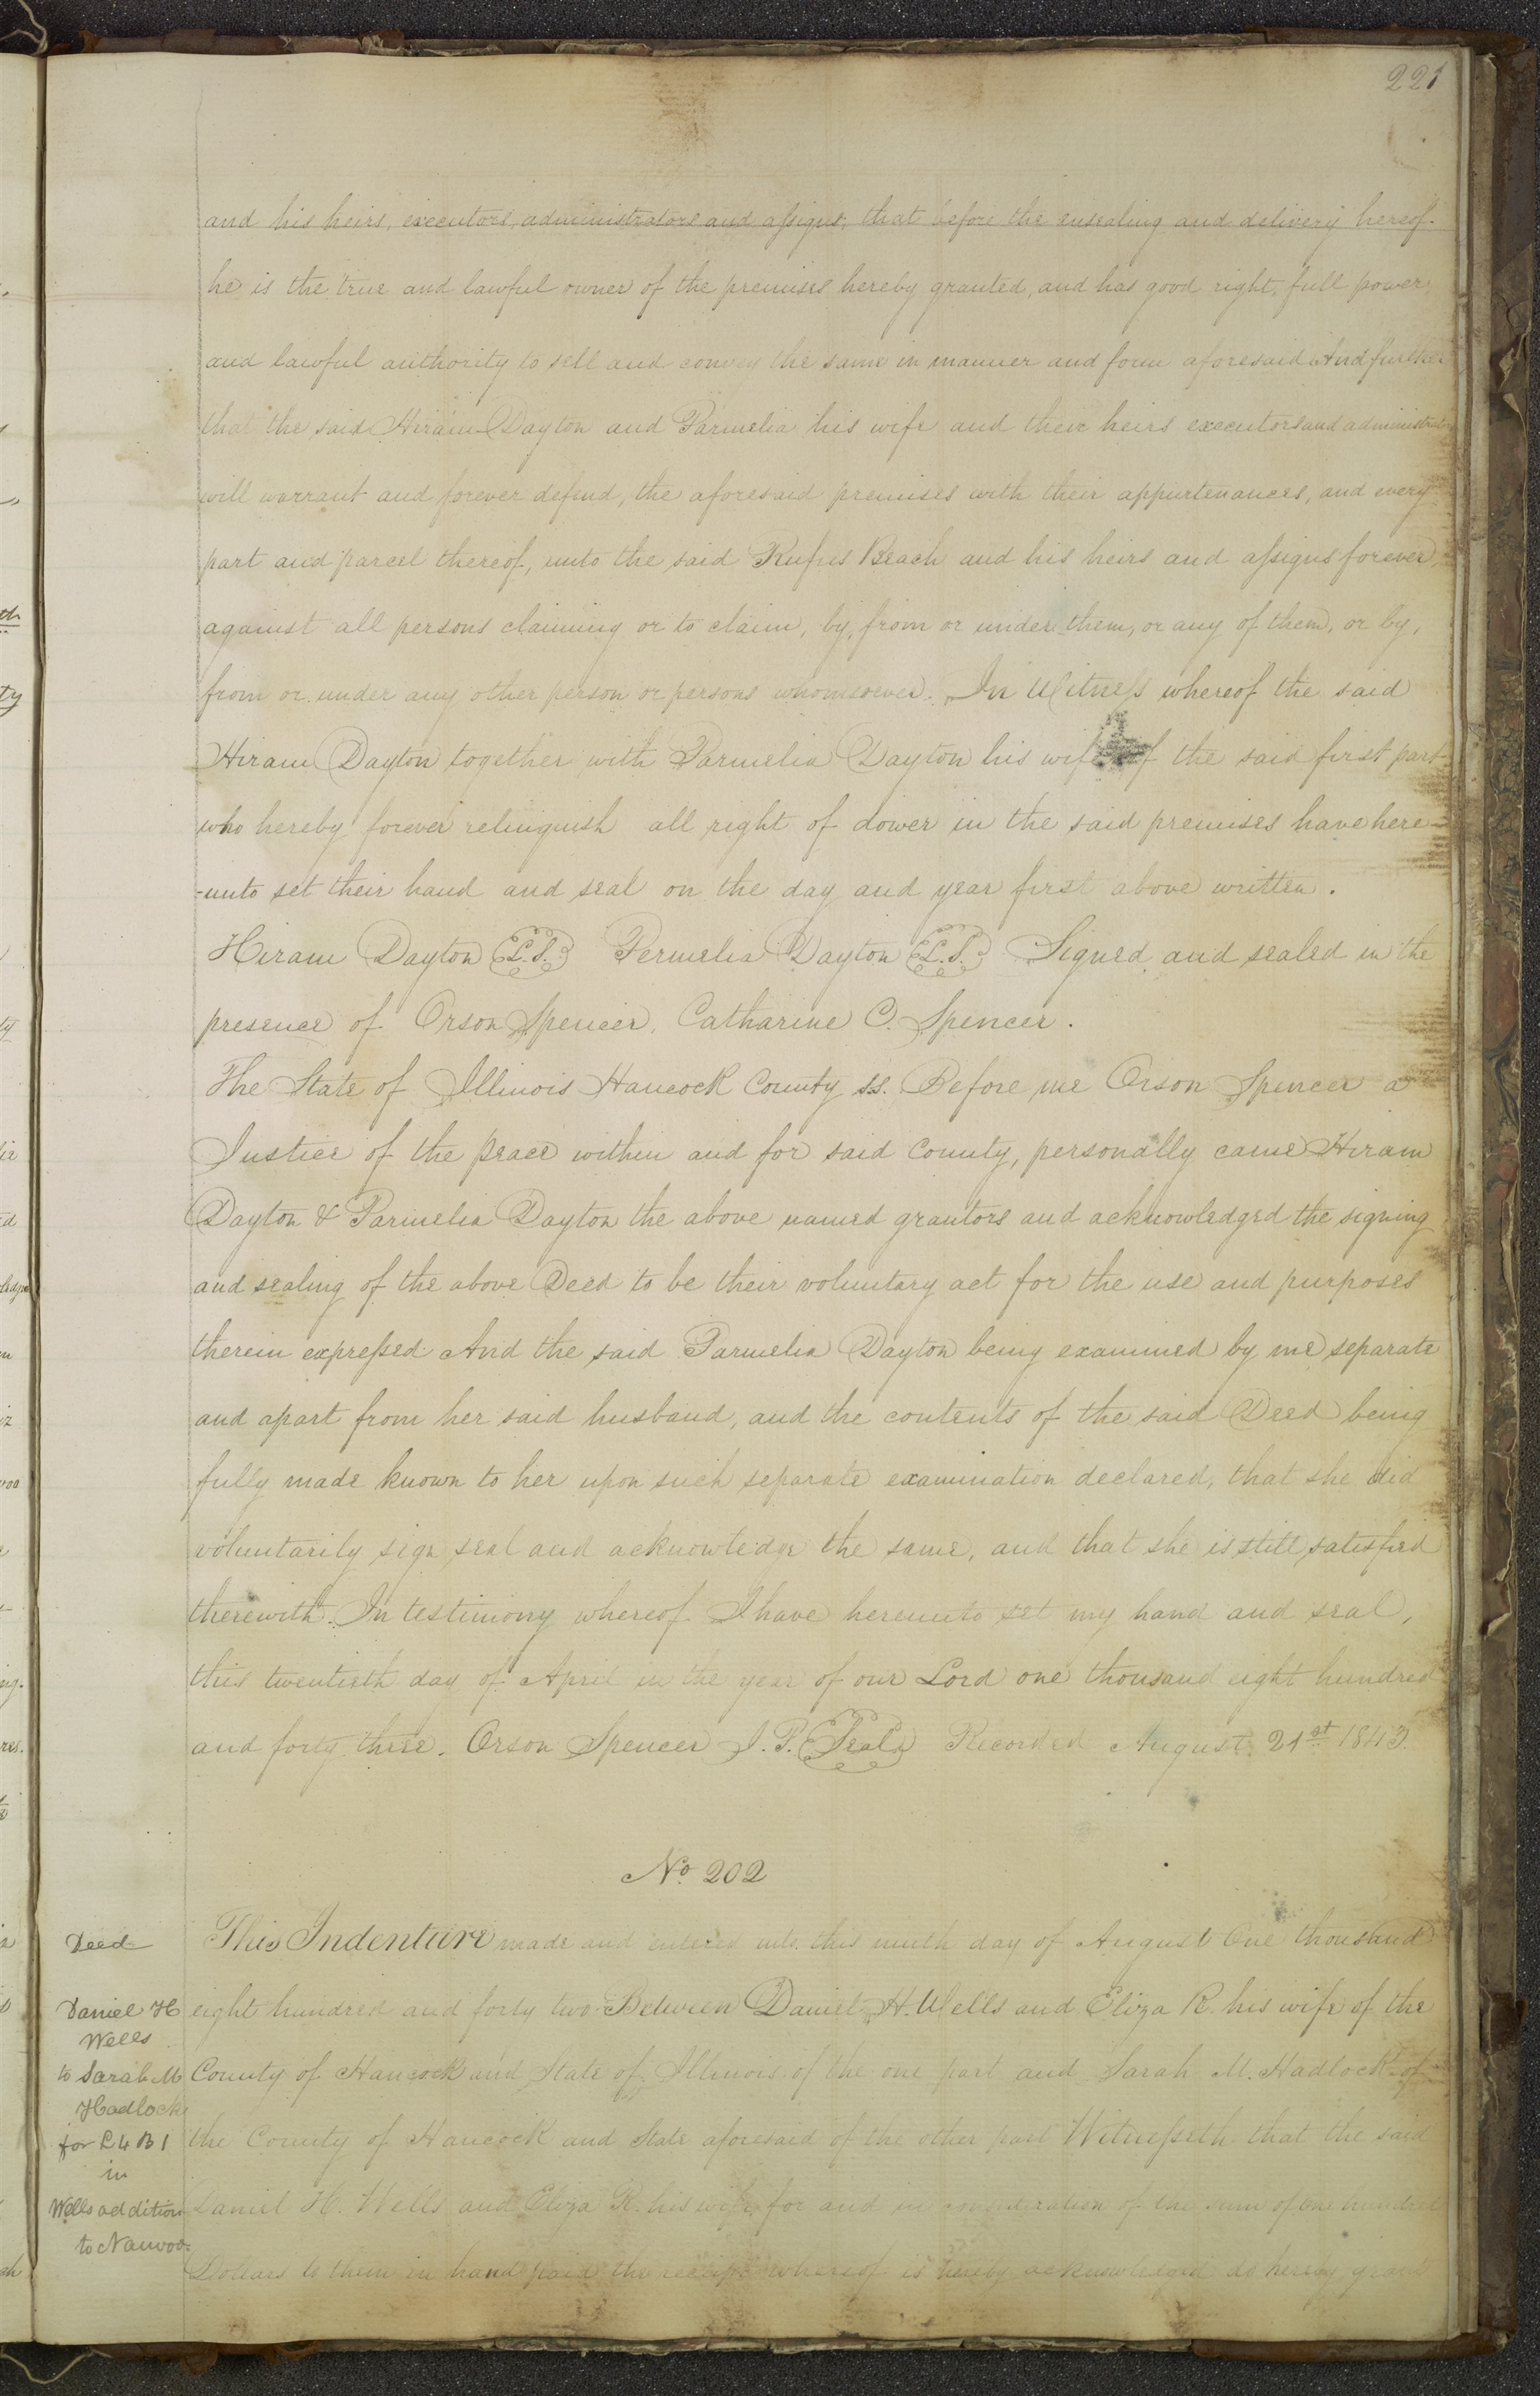 221
and his heirs, executors, administrators and assigns, that before the ensealing and delivery hereof.
he is the true and lawful owner of the premises hereby granted, and has good right, full power,
and lawful authority to sell and convey the same in manner and form aforesaid And further
that the said Hiram Dayton and Parmelia his wife and their heirs executors and administrators
will warrant and forever defend, the aforesaid premises with their appurtenances, and every
part and parcel thereof, unto the said Rufus Beach and his heirs and assigns forever,
against all persons claiming or to claim, by, from or under them, or any of them, or by,
from or under any other person or persons whomsoever. In Witness whereof the said
Hiram Dayton together with Parmelia Dayton his wife of the said first part
who hereby forever relinquish all right of dower in the said premises have here-
-unto set their hand and seal on the day and year first above written.
Hiram Dayton L.S. Permelia Dayton L.S. Signed and sealed in the
presence of Orson Spencer, Catharine C. Spencer.
The State of Illinois Hancock County ss. Before me Orson Spencer a
Justice of the peace within and for said County, personally came Hiram
Dayton & Parmelia Dayton the above named grantors and acknowledged the signing
and sealing of the above Deed to be their voluntary act for the use and purposes
therein expressed And the said Parmelia Dayton being examined by me separate
and apart from her said husband, and the contents of the said Deed being
fully made known to her upon such separate examination declared, that she did
voluntarily sign seal and acknowledge the same, and that she is still satisfied
therewith. In testimony whereof. I have hereunto set my hand and seal,
this twentieth day of April in the year of our Lord one thousand eight hundred
and forty three. Orson Spencer J.P. Seal Recorded August 21st 1843.
No. 202
Deed
Daniel H
Wells
to Sarah M
Hadlock
for L4 B1
in
Wells addition
to Nauvoo.
This Indenture made and entered into this ninth day of August One thousand
eight hundred and forty two Between Daniel H. Wells and Eliza R. his wife of the
County of Hancock and State of Illinois of the one part and Sarah M. Hadlock of
the County of Hancock and State aforesaid of the other part Witnesseth that the said
Daniel H. Wells and Eliza R. his wife for and in consideration of the sum of one hundred
Dollars to them in hand paid the receipt whereof is hereby acknowledged do hereby grant